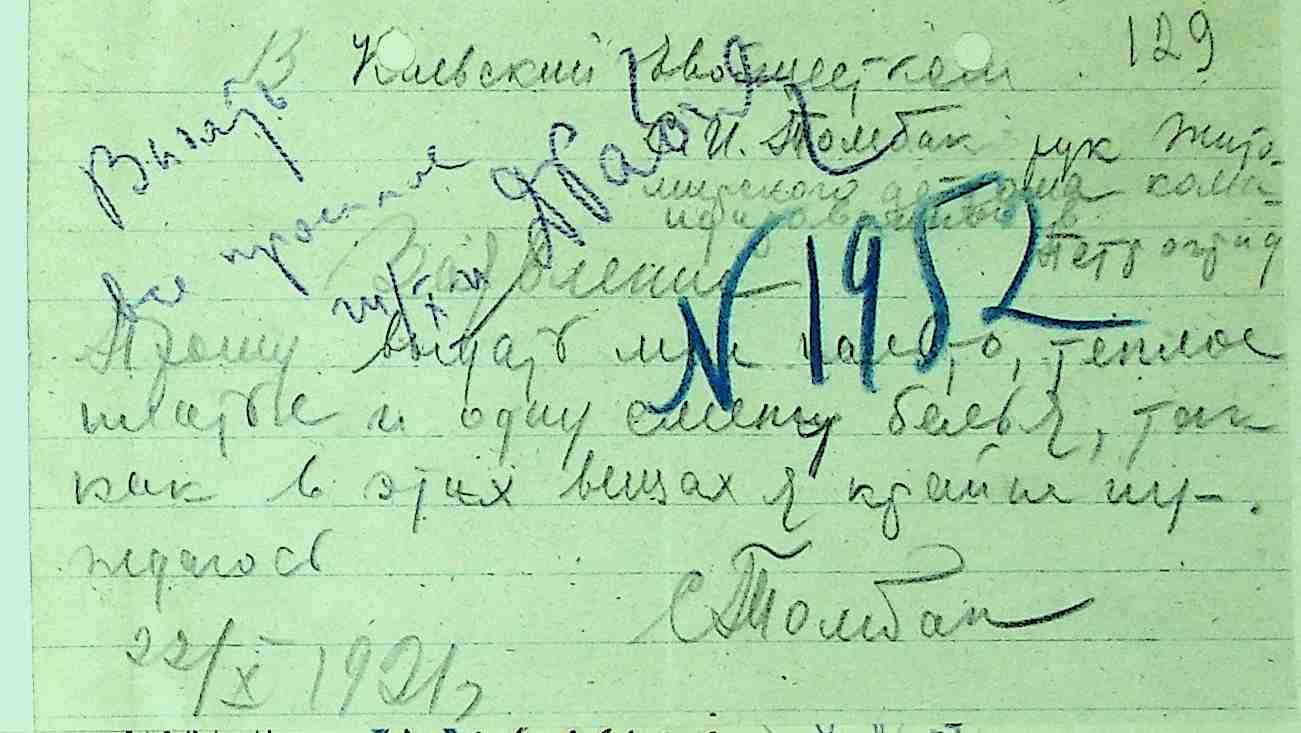 129
В Киевский Евобщестком
С. И. Томбак рук Жито-
мирского детдома кома-
ндированной в
Петроград
Заявление
Прошу выдать мне пальто, теплое
платье и одну смену белья, так
как в этих вещах я крайне ну-
ждаюсь
С Томбак
22/X 1921,
Выдать
все просимое
N 1952